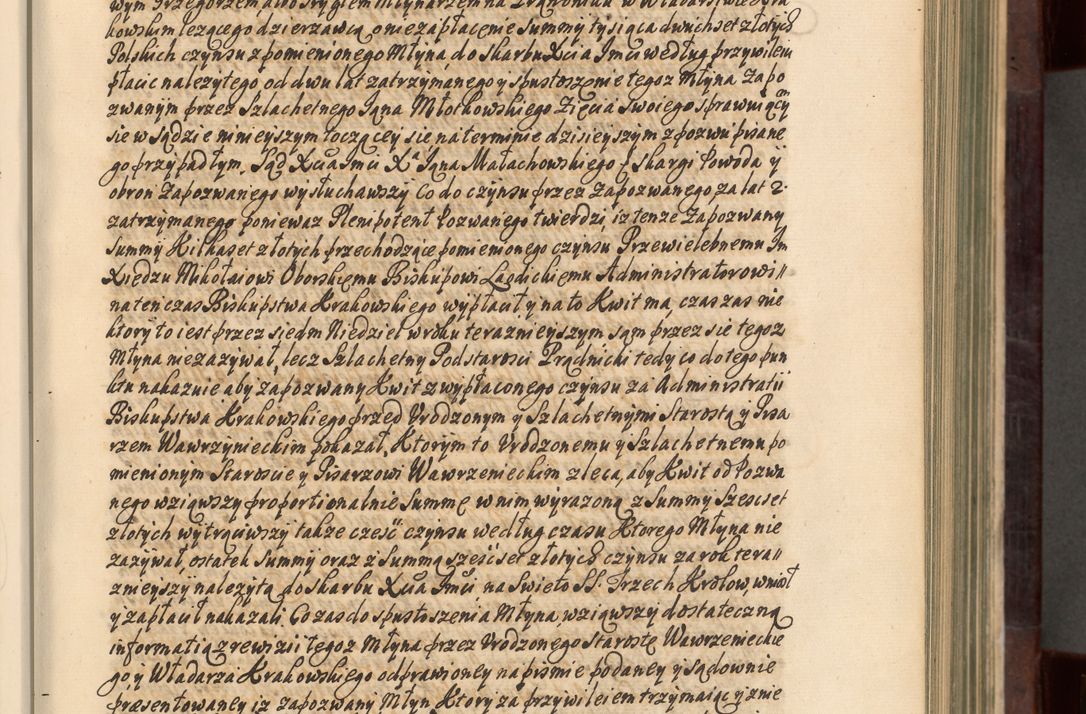 wym Grzegorzem albo Srzglem Młynarzem na Prądniku w Władarstwie Kra
kowskim lezącego dzierzawcą o niezapłacenie summy tysiąca dwuchset złotych
Polskich czynsu z pomienionego Młyna do skarbu Xcia Jmci według przywileiu
płacic nalezytego od dwu lat zatrzymanego y spustoszenie tegoz Młyna Zapo
zwanym przez Szlachetnego Jana Młotkowskiego Zięcia swoiego sprawuiącym
sie w sądzie ninieyszym toczącey się na terminie dzisieyszym z pozwu pisane
go przypadłym. Sąd Xcia Jmci Xa Jana Małachowskiego skargi Powoda y
obron Zapozwanego wysłuchawszy Co do czynsu przez Zapozwanego za lat 2.
zatrzymanego poniewaz Plenipotent Pozwanego twierdzi, iz tenze Zapozwany
summy Kilkaset złotych przechodzące pomienionego czynsu Przewielebnemu Jm
Xiędzu Mikołaiowi Oborskiemu Biskupowi Laodickiemu Administratorowi
na ten czas Biskupstwa Krakowskiego wypłacił y na to Kwit ma, czas zas nie
ktory to iest przez siedm Niedziel w roku teraznieyszym sam przez sie tegoz
Młyna niezazywał, lecz Szlachetny Podstarosci Prądnicki tedy co do tego pun
ktu nakazuie aby zapozwany Kwit z wypłaconego czynsu za Administratii
Biskupstwa Krakowskiego przed Urodzonym y Szlachetnymi Starostą y Pisa
rzem Wawrzynieckim pokazał, Ktorym to Urodzonemu y Szlachetnemu po
mienionym Staroscie y Pisarzowi Wawrzenieckim zleca, aby Kwit od Pozwa
nego wziąwszy proportionalnie summę w nim wyrazoną z summy szescset
złotych wytrąciwszy takze częsć czynsu według czasu Ktorego Młyna nie
zazywał, ostatek summy oraz z summą szescset złotych czynsu za rok tera
znieyszy nalezytą do skarbu Xcia Jmci na Swieto SS. Trzech Krolow, wniosł
y zapłacił nakazali. Co zas do spustoszenia Młyna, wziąwszy dostateczną
informatią z rewizii tegoz Młyna przez Urodzonego Starostę Wawrzenieckie
go y Władarza Krakowskiego odprawioney na pismie podaney y sądownie
præsentowaney iz zapozwany Młyn Ktory za przywileiem trzymaiąc y znie